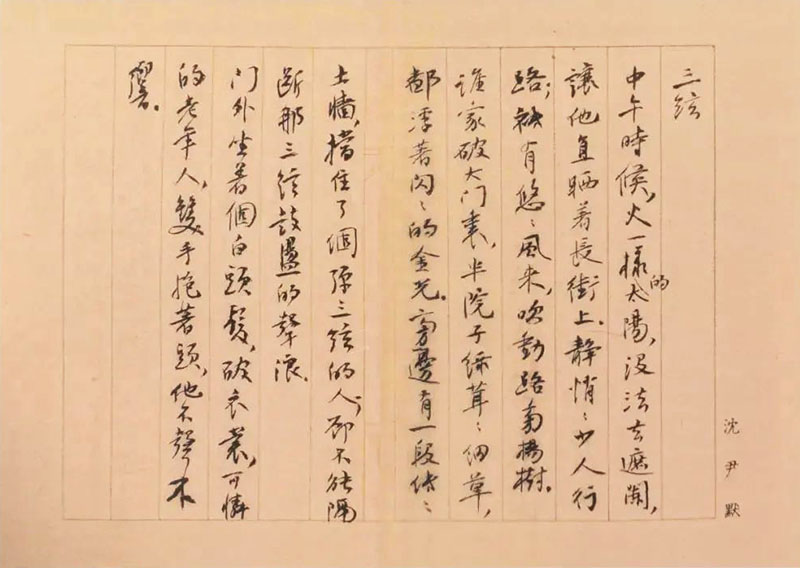 沈尹默
三絃
中午時候，火一樣的太陽，沒法去遮闌，
讓他直晒着長街上。靜悄〻少人行
路；祇有悠〻風来，吹動路旁楊樹。
誰家破大门裏，半院子綠茸〻细草，
都浮著闪〻的金光。旁邊有一段低〻
土牆，擋住了個弹三絃的人，却不能隔
断那三絃鼓盪的聲浪。
门外坐着個白頭髮，破衣裳，可憐
的老年人，雙手抱著頭，他不聲不
響。